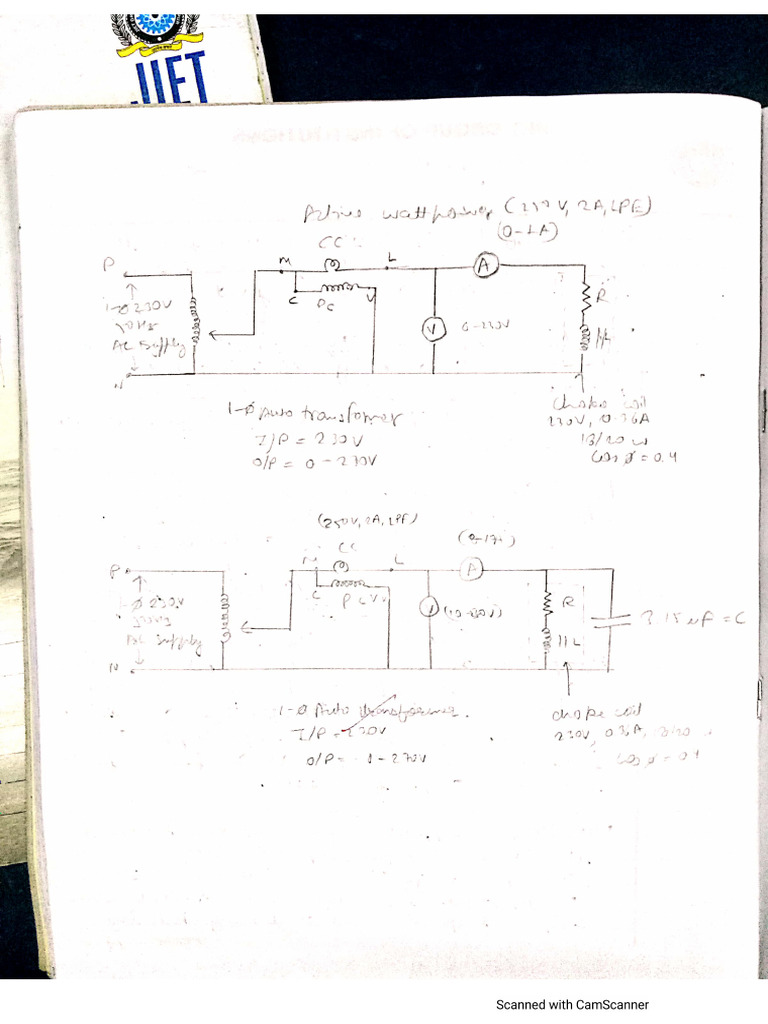 JIET
Active wattpower (230V, 2A, LPF)
(0-1A)
CC
P
M
L
A
C
PC
V
R
1-Ø 230V
50Hz
AC Supply
V
0-230V
N
1-Ø Auto transformer
I/P = 230V
O/P = 0-270V
Choke coil
230V, 0.36A
18/20 w
Cos ø = 0.4
(250V, 2A, LPF)
CC
M
L
A
P
C
PC
V
1-Ø 230V
AC Supply
R
L
3.15 µF = C
N
1-Ø Auto transformer.
I/P = 230V
O/P = 0-270V
choke coil
230V, 0.36A,
Cos ø = 0.4
Scanned with CamScanner